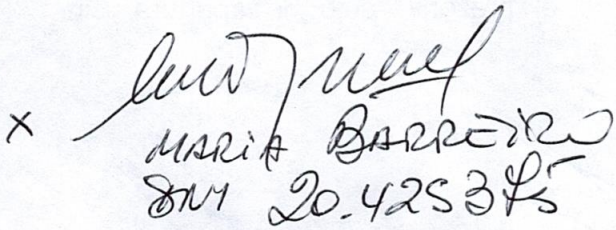 x
MARIA BARREIRO
DNI 20.425375